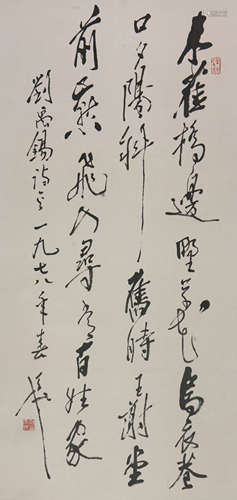 朱雀橋邊野草花烏衣巷
口夕陽斜舊時王謝堂
前燕飛入尋常百姓家
劉禹錫詩之一九七八年春